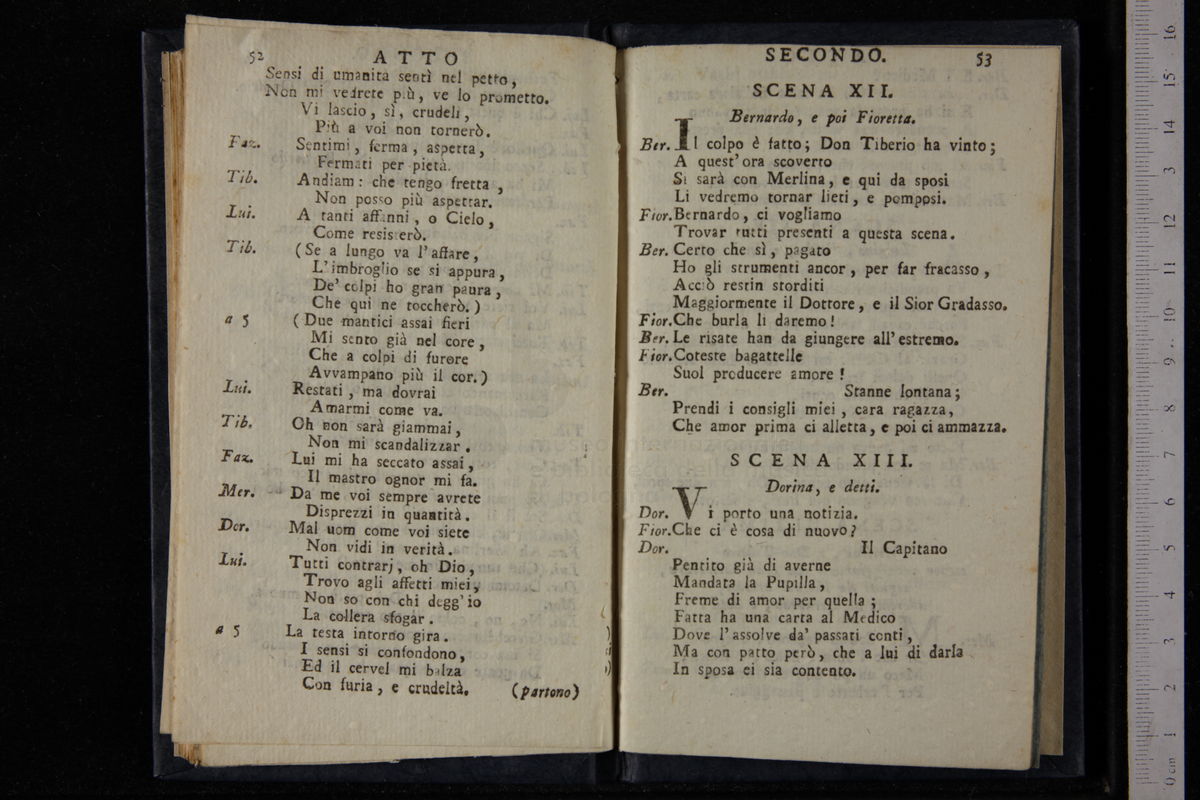 52 ATTO
Sensi di umanita sentì nel petto,
Non mi vedrete più, ve lo prometto.
Vi lascio, sì, crudeli,
Più a voi non tornerò.
Faz. Sentimi, ferma, aspetta,
Fermati per pietà.
Tib. Andiam: che tengo fretta,
Non posso più aspettar.
Lui. A tanti affanni, o Cielo,
Come resisterò.
Tib. (Se a lungo va l'affare,
L'imbroglio se si appura,
De' colpi ho gran paura,
Che qui ne toccherò.)
a 5 (Due mantici assai fieri
Mi sento già nel core,
Che a colpi di furore
Avvampano più il cor.)
Lui. Restati, ma dovrai
Amarmi come va.
Tib. Oh non sarà giammai,
Non mi scandalizzar.
Faz. Lui mi ha seccato assai,
Il mastro ognor mi fa.
Mer. Da me voi sempre avrete
Disprezzi in quantità.
Dor. Mal uom come voi siete
Non vidi in verità.
Lui. Tutti contrarj, oh Dio,
Trovo agli affetti miei,
Non so con chi degg'io
La collera sfogar.
a 5 La testa intorno gira.
I sensi si confondono,
Ed il cervel mi balza
Con furia, e crudeltà. (partono)
SECONDO. 53
SCENA XII.
Bernardo, e poi Fioretta.
Ber. Il colpo è fatto; Don Tiberio ha vinto;
A quest'ora scoverto
Si sarà con Merlina, e qui da sposi
Li vedremo tornar lieti, e pomposi.
Fior. Bernardo, ci vogliamo
Trovar tutti presenti a questa scena.
Ber. Certo che sì, pagato
Ho gli strumenti ancor, per far fracasso,
Acciò restin storditi
Maggiormente il Dottore, e il Sior Gradasso.
Fior. Che burla li daremo!
Ber. Le risate han da giungere all'estremo.
Fior. Coteste bagattelle
Suol producere amore!
Ber. Stanne lontana;
Prendi i consigli miei, cara ragazza,
Che amor prima ci alletta, e poi ci ammazza.
SCENA XIII.
Dorina, e detti.
Dor. Vi porto una notizia.
Fior. Che ci è cosa di nuovo?
Dor. Il Capitano
Pentito già di averne
Mandata la Pupilla,
Freme di amor per quella;
Fatta ha una carta al Medico
Dove l'assolve da' passati conti,
Ma con patto però, che a lui di darla
In sposa ei sia contento.
0 cm 1 2 3 4 5 6 7 8 9 10 11 12 13 14 15 16